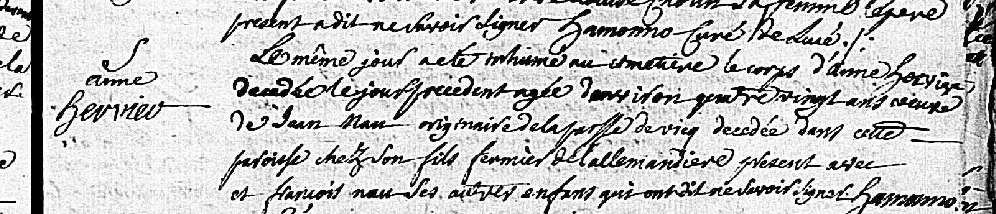 present a dit ne savoir signer Hamonno Curé de Lucé ./.
S
anne
hervieu
Le même jour a eté inhumé au cimetiere le corps d'anne hervieu
decedée le jour precedent agée d'environ quatre vingt ans veuve
de Jean Nau originaire de la parsse de vicq decedée dans cette
paroisse chez son fils fermier de lallemandiere present avec
et françois nau ses autres enfans qui ont dit ne savoir signer Hamonno